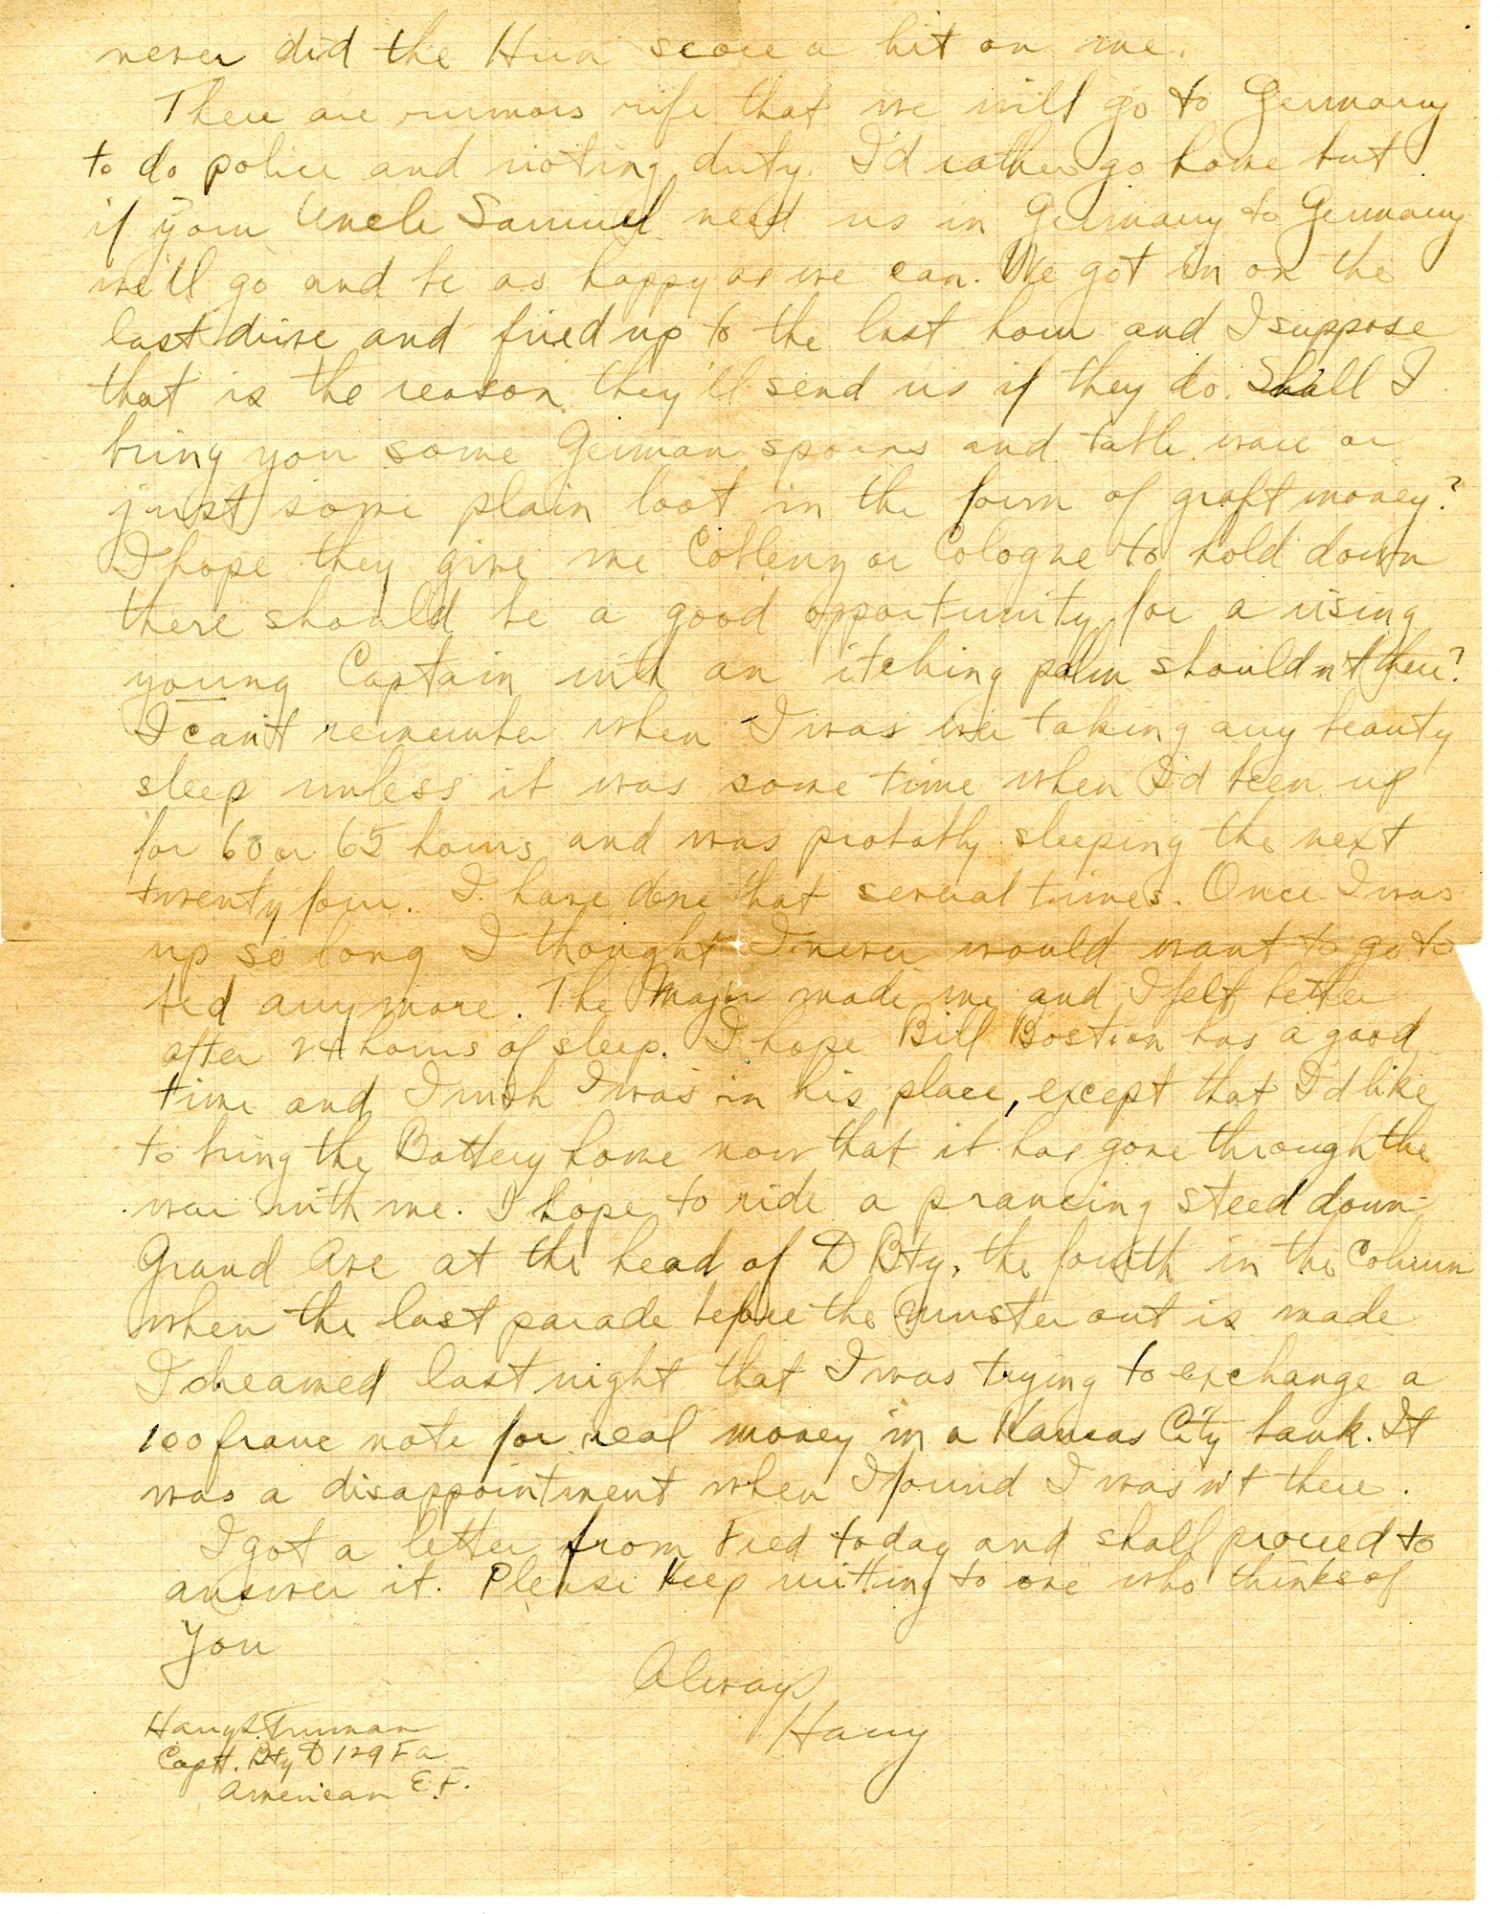 never did the Hun score a hit on me.
There are rumors rife that we will go to Germany
to do police and rioting duty. I'd rather go home but
if your Uncle Samuel need us in Germany to Germany
we'll go and be as happy as we can. We got in on the
last drive and fired up to the last hour and I suppose
that is the reason they'll send us if they do. Shall I
bring you some German spoons and table ware or
just some plain loot in the form of graft money?
I hope they give me Coblenz or Cologne to hold down
there should be a good opportunity for a rising
young Captain with an itching palm shouldn't there?
I can't remember when I was ever taking any beauty
sleep unless it was some time when I'd been up
for 60 or 65 hours and was probably sleeping the next
twenty four. I have done that several times. Once I was
up so long I thought I never would want to go to
bed any more. The Major made me and I felt better
after 24 hours of sleep. I hope Bill Bostian has a good
time and I wish I was in his place, except that I'd like
to bring the Battery home now that it has gone through the
war with me. I hope to ride a prancing steed down
Grand Ave at the head of D Bty, the fourth in the Column
when the last parade before the muster out is made
I dreamed last night that I was trying to exchange a
100 franc note for real money in a Kansas City bank. It
was a disappointment when I found I wasn't there.
I got a letter from Fred today and shall proceed to
answer it. Please keep writing to one who thinks of
you
Always
Harry
Harry S. Truman
Capt. Bty D 129 F a
American E.F.